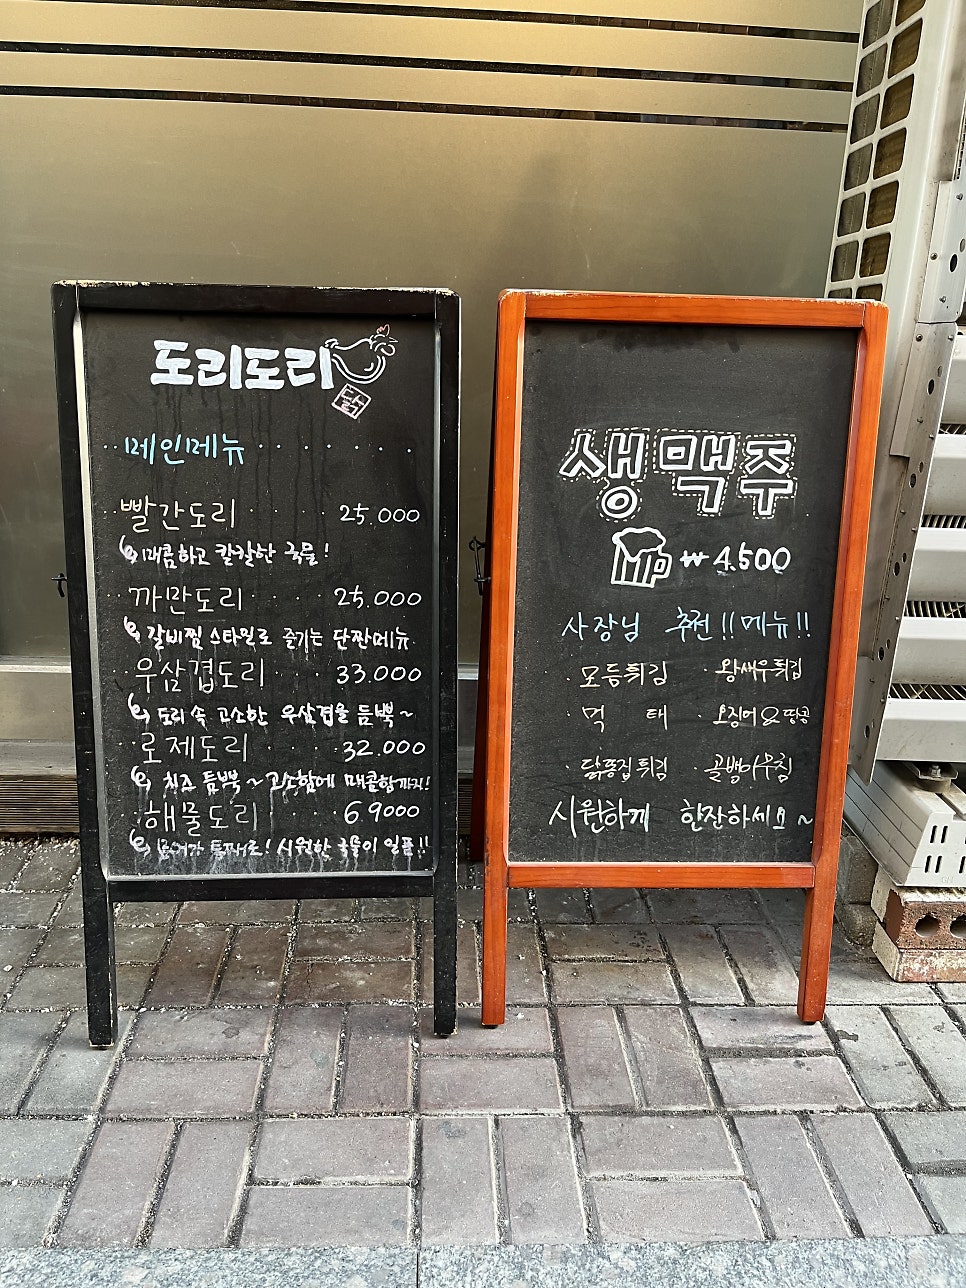 도리도리
메인메뉴
빨간도리 25.000
매콤하고 칼칼한 국물!
까만도리 25.000
갈비찜 스타일로 즐기는 단짠메뉴
우삼겹도리 33.000
도리 속 고소한 우삼겹을 듬뿍~
로제도리 32.000
치즈 듬뿍~ 고소함에 매콤함까지!
해물도리 69000
통째로! 시원한 국물이 일품!!
생맥주
₩4.500
사장님 추천!!메뉴!!
·모듬튀김 ·왕새우튀김
·먹태 ·오징어&땅콩
·닭똥집튀김 ·골뱅이무침
시원하게 한잔하세요~